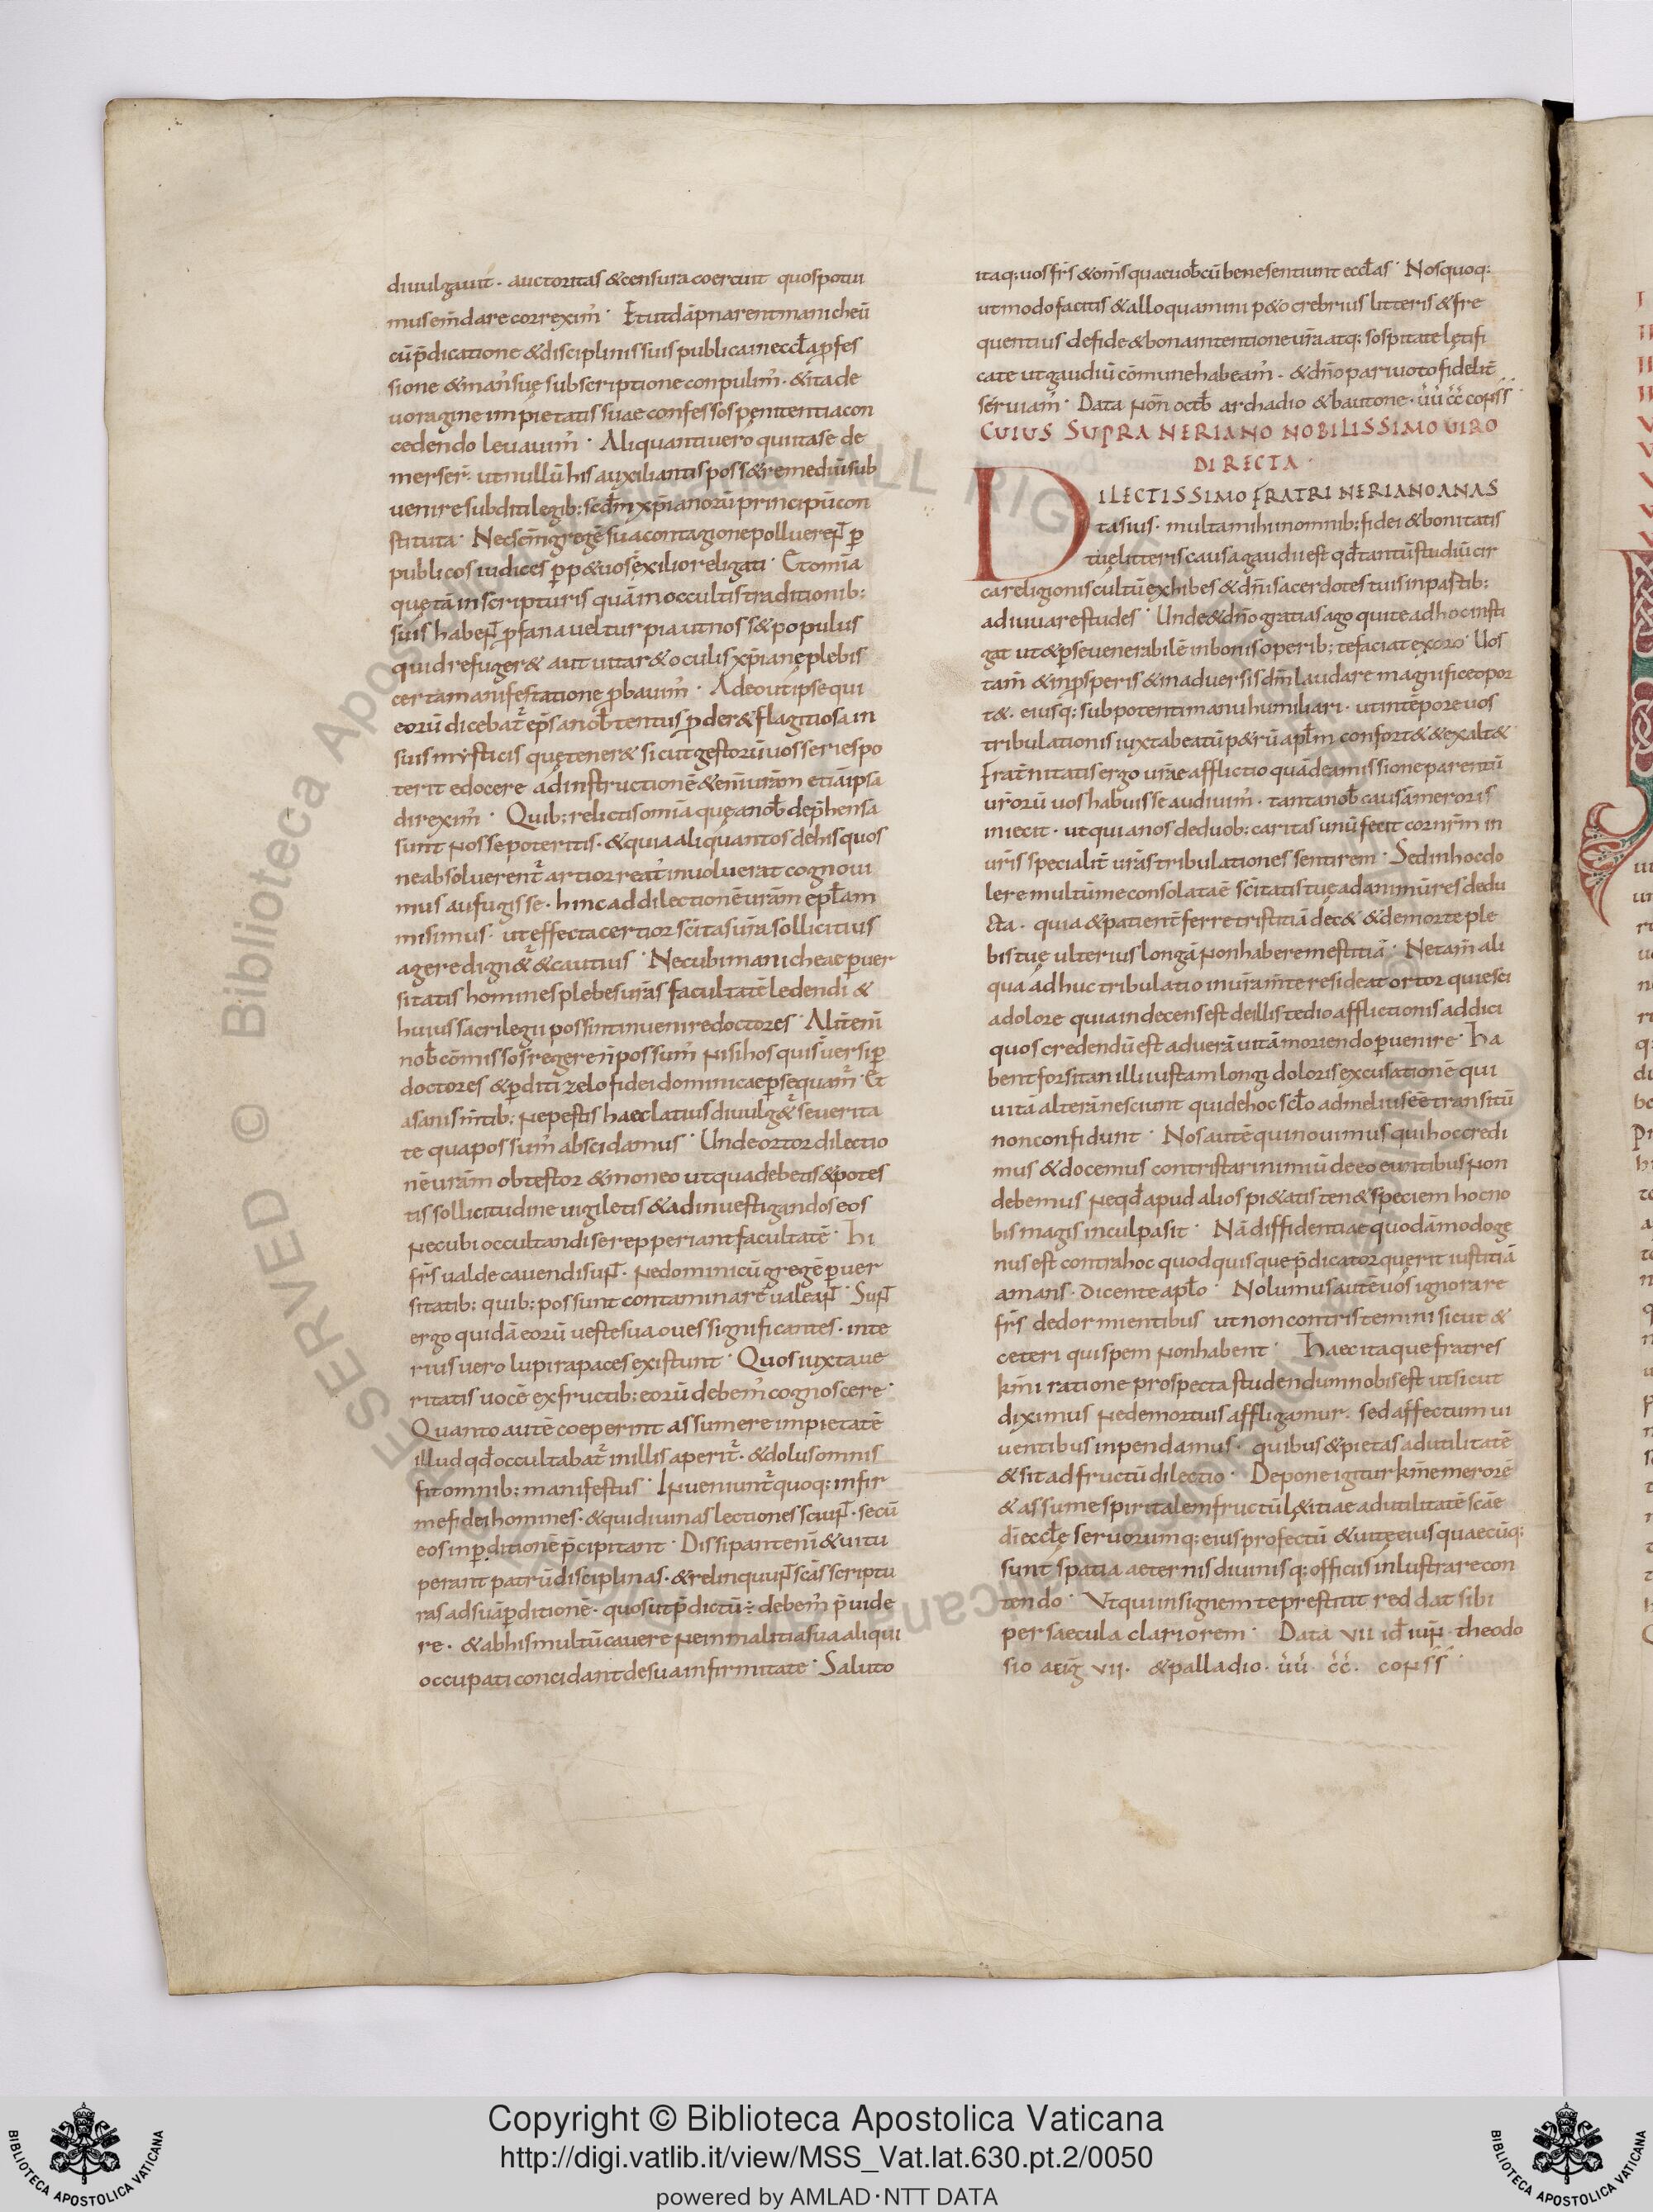 diuulgauit · auctoritas & censura coercuit quos potui
mus em̄dare correxim᾽ · Et ut dāpnarent manicheū
cū p̄dicatione & disciplinis suis publica in eccłą ꝓfes
sione & man᾽ suę subscriptione conpulim᾽ · & ita de
uoragine impietatis suae confessos penitentia con
cedendo leuauim᾽ · Aliquanti uero qui ita se de
merser̄ · ut nullū his auxiliantis poss& remediū sub
uenire subditi legib: scđm xp̄ianorū principū con
stituta · Nec scm̄ gregē sua contagione polluereɴ̄t ꝑ
publicos iudices ꝑp&uo s᾽ exilio religati · Et om̄ia
quę tā in scripturis quā in occultis traditionib:
suis habeɴ̄t ꝓfana uel turpia ut nos s& populus
quid refuger& aut uitar& oculis xp̄ianę plebis
certa manifestatione ꝓbauim᾽ · Adeo ut ipse qui
eorū dicebat᾽ ep̄s a noƀ tentus ꝓder& flagitiosa in
suis mysticis quę tener& sicut gestorū uos series po
terit edocere ad instructionē & enī urām etiā ipsa
direxim᾽ · Quib: relictis om̄ia quę a noƀ dep̄hensa
sunt nosse poteritis · & quia aliquantos de his quos
ne absoluerent᾽ artior reat᾽ inuoluerat cognoui
mus aufugisse · hinc ad dilectionē urām epłam
misimus · ut effecta certior sc̄itas ur̄a sollicitius
agere dign&᾽ & cautius · Necubi manicheae ꝑuer
sitatis homines plebes ur̄as facultatē ledendi &
huius sacrilegii possint inuenire doctores · Alit̄ enī
noƀ cōmissos regere n̄ possum᾽ nisi hos qui s᾽ uersi ꝑ
doctores & ꝑditi zelo fidei dominicae ꝑsequam᾽ · Et
a sanis m̄tib: ne pestis haec latius diuulg&᾽ seuerita
te qua possum᾽ abscidamus · Unde ortor dilectio
nē urām obtestor & moneo ut qua debetis & potes
tis sollicitudine uigiletis & ad inuestigandos eos
necubi occultandi se repperiant facultatē · Hi
fr̄s ualde cauendi suɴ̄t · ne dominicū gregē ꝑuer
sitatib: quib: possunt contaminare ualeaɴ̄t · Suɴ̄t
ergo quidā eorū ueste sua oues significantes · inte
rius uero lupi rapaces existunt · Quos iuxta ue
ritatis uocē ex fructib: eorū debem᾽ cognoscere ·
Quanto autē coeperint assumere impietatē
illud qđ occultabat᾽ in illis aperit᾽ · & dolus omnis
fit omnib: manifestus · Inueniunt᾽ quoq: infir
me fidei homines · & qui diuinas lectiones sciuɴ̄t · secū
eos in ꝑditionē p̄cipitant · Dissipant enī & uitu
perant patrū disciplinas · & relinquuɴ̄t scās scriptu
ras ad suā ꝑditionē · quos ut p̄dictū ÷ debem᾽ p̄uide
re · & ab his multū cauere ne in malitia sua aliqui
occupati concidant de sua infirmitate · Saluto
itaq: uos fr̄s & om̄s quae uoƀcū bene sentiunt eccłas · Nos quoq:
ut modo facitis & alloquamini p&o crebrius litteris & fre
quentius de fide & bona intentione ur̄a atq: sospitate lętifi
cate ut gaudiū cōmune habeam᾽ · & dn̄o pari uoto fidelit̄
seruiam᾽ · Data non̄ octƀ archadio & bautone · ūū c̄c̄ conss̄ ·
CUIUS SUPRA NERIANO NOBILISSIMO UIRO
DIRECTA ·
DILECTISSIMO FRATRI NERIANO ANAS
tasius · multa mihi in omnib: fidei & bonitatis
tuę litteris causa gaudii est qđ tantū studiū cir
ca religionis cultū exhibes & dn̄i sacerdotes tuis in pastib:
adiuuare studes · Unde & dn̄o gratias ago qui te ad hoc insti
gat ut & ꝑseuerabilē in bonis operib: te faciat exoro · Uos
tam̄ & in ꝓsperis & in aduersis dm̄ laudare magnifice opor
t& · eiusq: sub potenti manu humiliari · ut in tēpore uos
tribulationis iuxta beatū p&rū apłm confort& & exalt&
Frat̄nitatis ergo ur̄ae afflictio quā de amissione parentū
ur̄orū uos habuisse audiuim᾽ · tanta noƀ causā meroris
iniecit · ut quia nos de duob: caritas unū fecit cor nr̄m in
ur̄is specialit̄ ur̄as tribulationes sentirem · Sed in hoc do
lere multū me consolata ē sc̄itatis tuę ad animū res dedu
cta · quia & patient̄ ferre tristitiā dec& & de morte ple
bis tuę ulterius longā non habere mestitiā · Ne tam̄ ali
qua adhuc tribulatio in ur̄a m̄te resideat ortor quiesci
a dolore quia indecens est de illis tedio afflictionis addici
quos credendū est ad uerā uitā moriendo ꝑuenire · Ha
bent forsitan illi iustam longi doloris excusationē qui
uitā alterā nesciunt qui de hoc scło ad melius eē transitū
non confidunt · Nos autē qui nouimus qui hoc credi
mus & docemus contristari nimiū de eo euntibus non
debemus ne qđ apud alios pi&atis ten& speciem hoc no
bis magis in culpa sit · Nā diffidentiae quodāmodo ge
nus est contra hoc quod quisque p̄dicat or querit iustitiā
amans · dicente apło · Nolumus autē uos ignorare
fr̄s de dormientibus ut non contristemini sicut &
ceteri qui spem non habent · Haec itaque fratres
km̄i ratione prospecta studendum nobis est ut sicut
diximus ne de mortuis affligamur · sed affectum ui
uentibus inpendamus · quibus & pietas ad utilitatē
& sit ad fructū dilectio · Depone igitur km̄e merorē
& assume spiritalem fructū l&itiae ad utilitatē scāe
dī eccłę seruorumq: eius profectū & uitę eius quaecūq:
sunt spatia aeternis diuinisq: officiis inlustrare con
tendo · Ut qui insignem te prestitit reddat sibi
per saecula clariorem · Data vii iđ iuɴ̄ · theodo
sio aug̅ vii · & palladio · ūū · c̄c̄ · conss̄ ·
Copyright © Biblioteca Apostolica Vaticana
http://digi.vatlib.it/view/MSS_Vat.lat.630.pt.2/0050
powered by AMLAD·NTT DATA
BIBLIOTECA APOSTOLICA VATICANA
BIBLIOTECA APOSTOLICA VATICANA